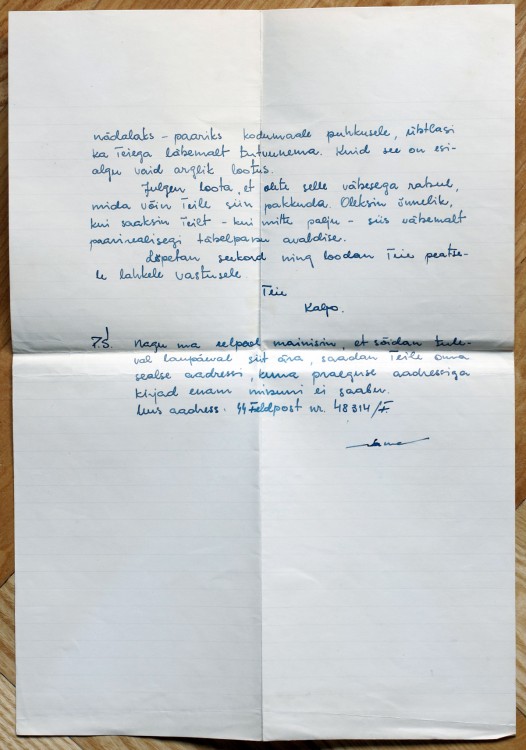 nädalaks - paariks kodumaale puhkusele, ühtlasi
ka Teiega lähemalt tutvunema. Kuid see on esi-
algu vaid arglik lootus.
Julgen loota, et olite selle vähesega rahul,
mida võin Teile siin pakkuda. Oleksin õnnelik,
kui saaksin Teilt - kui mitte palju - siis vähemalt
paarirealisegi tähelpanu avaldise.
Lõpetan seekord ning loodan Teie peatse-
le lahkele vastusele.
Teie
Kaljo.
P.S. Nagu ma eelpool mainisin, et sõidan tule-
val laupäeval siit ära, saadan Teile oma
sealse aadressi, kuna praeguse aadressiga
kirjad enam minuni ei saabu.
Uus aadress: SS Feldpost nr. 48314/F.
sama